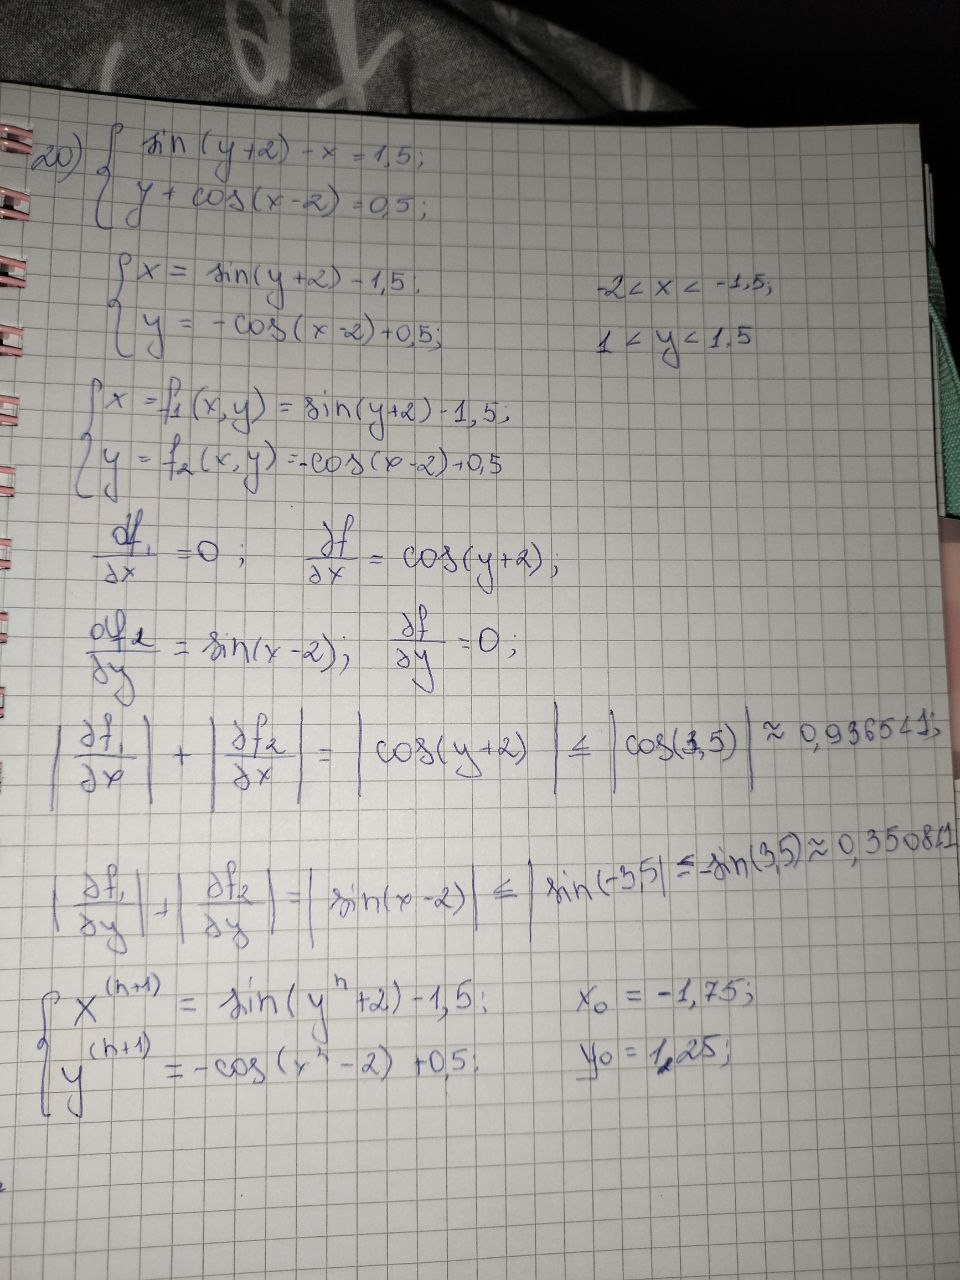 20) { sin(y+2) - x = 1,5;
y + cos(x-2) = 0,5;
{ x = sin(y+2) - 1,5; -2 < x < -1,5;
y = -cos(x-2) + 0,5; 1 < y < 1.5
{ x = f₁(x,y) = sin(y+2) - 1,5;
y = f₂(x,y) = -cos(x-2) + 0,5
∂f₁/∂x = 0; ∂f/∂x = cos(y+2);
∂f₂/∂y = sin(x-2); ∂f/∂y = 0;
|∂f₁/∂x| + |∂f₂/∂x| = |cos(y+2)| ≤ |cos(3,5)| ≈ 0,9365<1;
|∂f₁/∂y| + |∂f₂/∂y| = |sin(x-2)| ≤ |sin(-3,5| = -sin(3,5) ≈ 0,3508<1
{ x⁽ⁿ⁺¹⁾ = sin(yⁿ+2) - 1,5; x₀ = -1,75;
y⁽ⁿ⁺¹⁾ = -cos(xⁿ - 2) + 0,5; y₀ = 1,25;